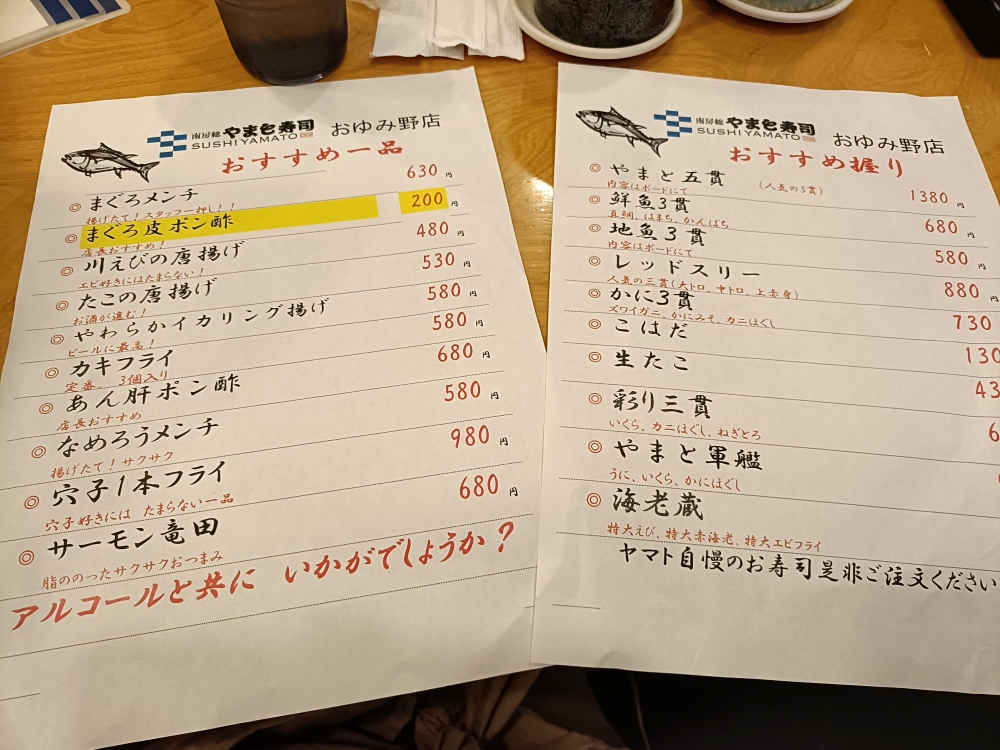 南房総 やまと寿司 おゆみ野店
SUSHI YAMATO
おすすめ一品
◎ まぐろメンチ 630円
揚げたて！スタッフ一押し！！
◎ まぐろ皮ポン酢 200円
店長おすすめ！
◎ 川えびの唐揚げ 480円
エビ好きにはたまらない！
◎ たこの唐揚げ 530円
お酒が進む！
◎ やわらかイカリング揚げ 580円
ビールに最高！
◎ カキフライ 580円
定番。 3個入り
◎ あん肝ポン酢 680円
店長おすすめ
◎ なめろうメンチ 580円
揚げたて！サクサク
◎ 穴子1本フライ 980円
穴子好きには たまらない一品
◎ サーモン竜田 680円
脂ののったサクサクおつまみ
アルコールと共に いかがでしょうか？
南房総 やまと寿司 おゆみ野店
SUSHI YAMATO
おすすめ握り
◎ やまと五貫 （人気の5貫） 1380円
内容はボードにて
◎ 鮮魚3貫 680円
真鯛、はまち、かんぱち
◎ 地魚3貫 580円
内容はボードにて
◎ レッドスリー 880円
人気の三貫(大トロ、中トロ、上赤身)
◎ かに3貫 730円
ズワイガニ、かにみそ、カニほぐし
◎ こはだ 130
◎ 生たこ 43
◎ 彩り三貫 6
いくら、カニほぐし、ねぎとろ
◎ やまと軍艦
うに、いくら、かにほぐし
◎ 海老蔵
特大えび、特大赤海老、特大エビフライ
ヤマト自慢のお寿司是非ご注文ください